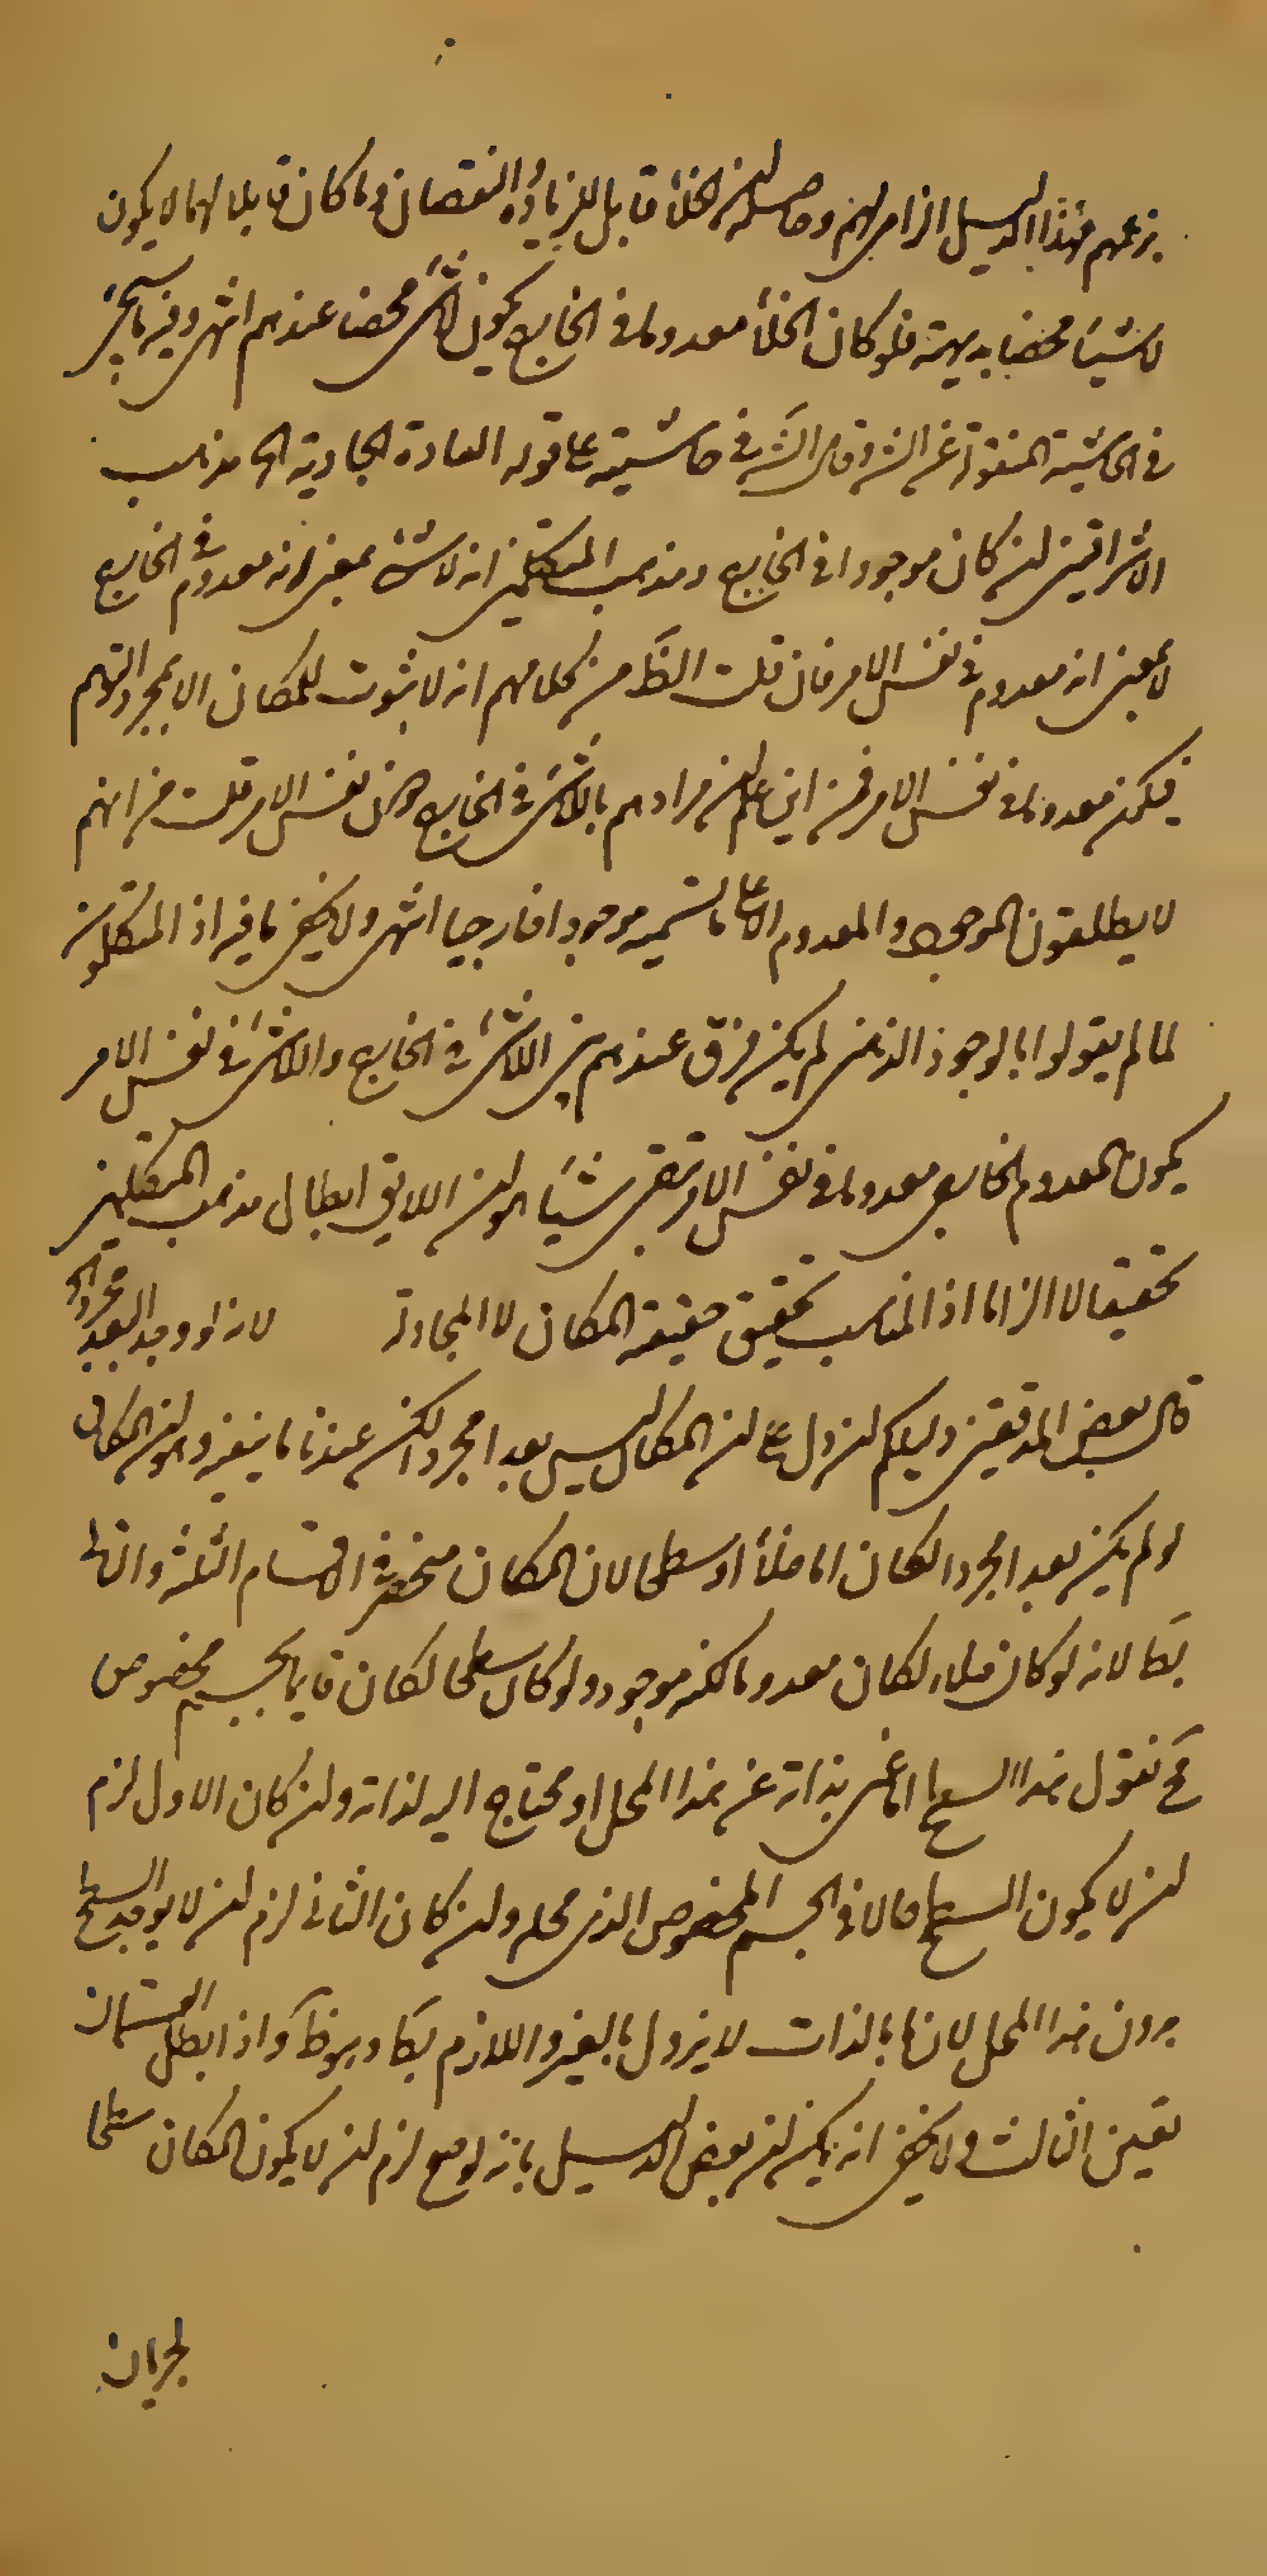 بزعمهم فهذا الدليل الزامي لهم وحاصله ان الخلأ قابل للزيادة والنقصان وما كان قابلا لهما لا يكون
لا شيئا محضا بديهة فلو كان الخلأ معدوما في الخارج يكون لا شئ محضا عندهم انتهى وفيه ما سيجئ
في الحاشية المنقولة عن الش وقال الش في حاشيته على قوله العادة الجادية الخ مذهب
الاشراقيين ان كان موجودا في الخارج ومذهب المتكلمين انه لا شئ بمعنى انه معدوم في الخارج
لا بمعنى انه معدوم في نفس الامر فان قلت الظ من كلامهم انه لا ثبوت للمكان الا بمجرد التوهم
فيكون معدوما في نفس الامر فمن اين علم ان مرادهم باللاشئ في الخارج دون نفس الامر قلت من انهم
لا يطلقون الموجود والمعدوم الا على ما نسميه موجودا خارجيا انتهى ولا يخفى ما فيه اذ المتكلمون
لما لم يقولوا بالوجود الذهني لم يكن فرق عندهم بين اللاشئ في الخارج واللاشئ في نفس الامر
يكون المعدوم الخارجي معدوما في نفس الامر بقي شيئا هو ان اللايق ابطال مذهب المتكلمين
تحقيقا لا الزاما اذ المناسب تحقيق حقيقة المكان لا المجادلة لانه لو وجد البعد مجردا الخ
قال بعض المدققين دليلكم ان دل على ان المكان ليس بعدا مجردا لكن عندنا ما ينفيه وهو ان المكان
لو لم يكن بعدا مجردا لكان اما خلأ او سطحا لان المكان منحصر في الاقسام الثلثة والتالي
بط لانه لو كان خلاء لكان معدوما لكنه موجود ولو كان سطحا لكان قايما بجسم مخصوص
فح نقول هذا السطح اما غني بذاته عن هذا المحل او محتاج اليه لذاته وان كان الاول لزم
ان لا يكون السطح حالا في الجسم المخصوص الذي محله وان كان الثاني لزم ان لا يوجد السطح
بدون هذا المحل لان ما بالذات لا يزول بالغير واللازم بط وهو ظ واذا بطل القسمان
تعين الثالث ولا يخفى انه يمكن ان بعض الدليل بانه لو صح لزم ان لا يكون المكان سطحا
لجريان